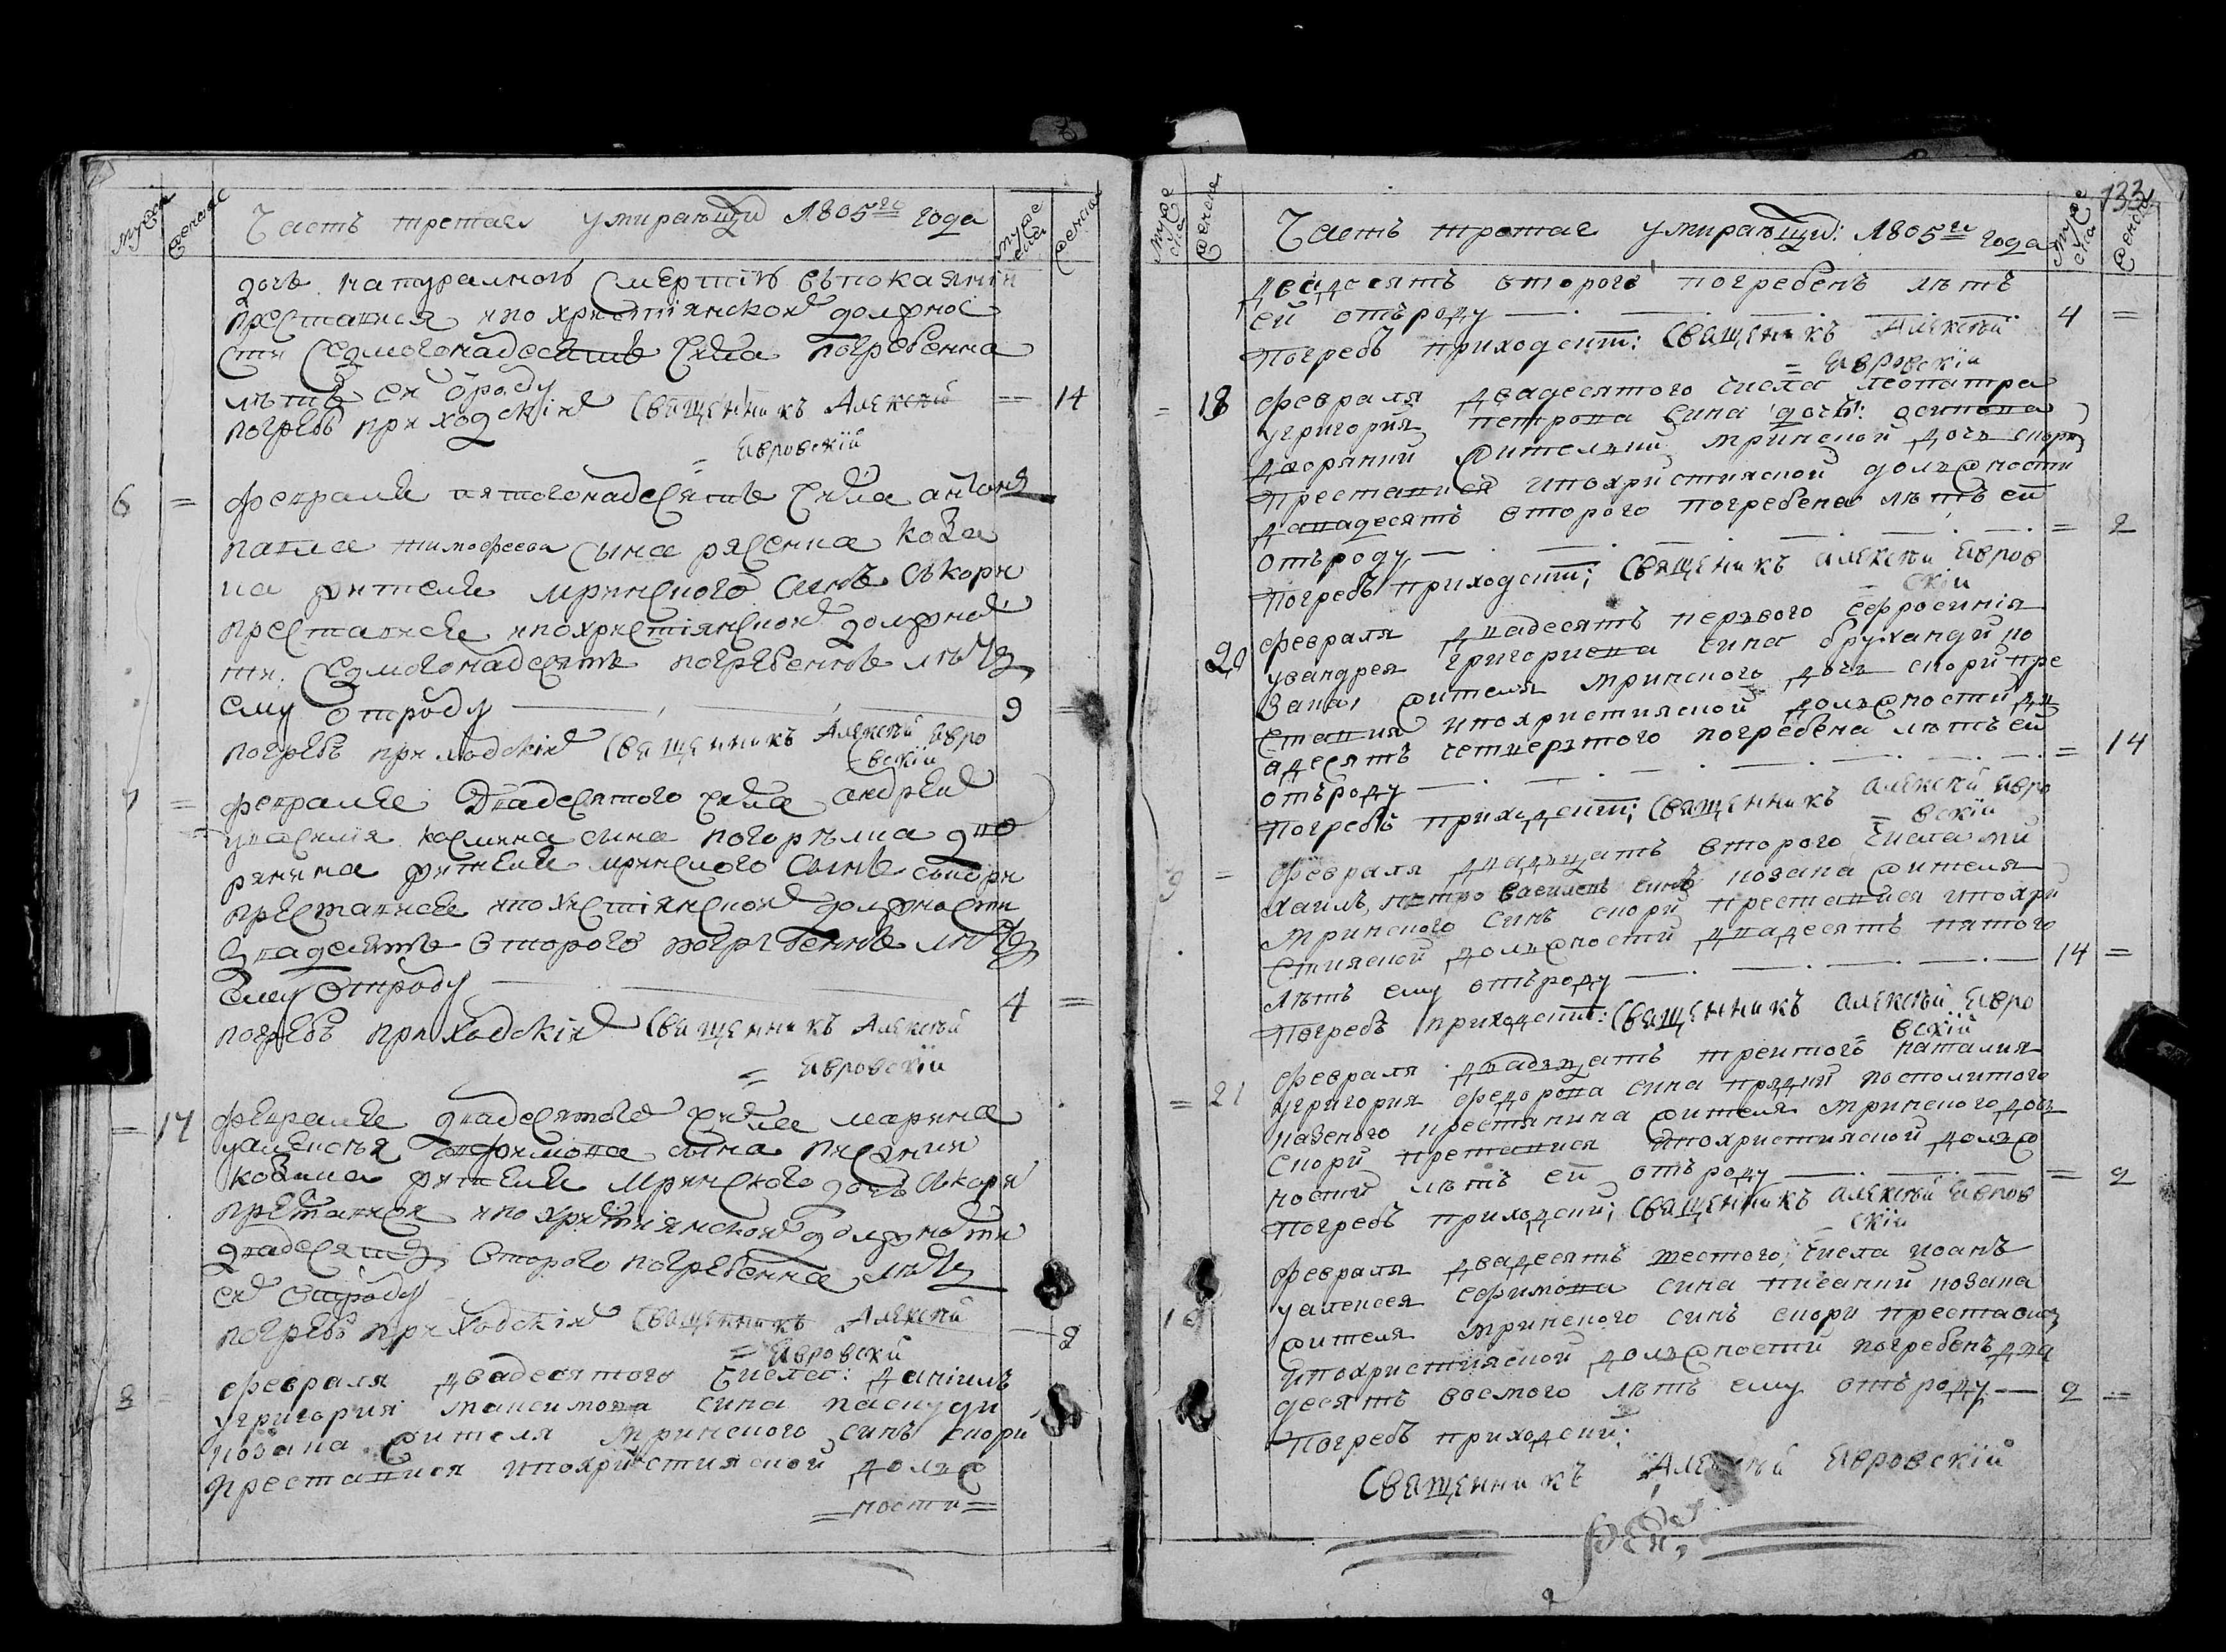 Часть третая умирающи 1805го года
мужеска женска
дочь натуралною смертию въ покаянии
преставися и по христіянской должнос
сти седмогонадесять числа погребенна
лѣтъ ей ѿроду = 14
погребъ приходскій Священникъ Алексѣй
= Явровскій
6 = февраля пятогонадесять числа
павла тимофеева сына козa
ка жителя мринского синъ скори
преставися и по христіянской должнос
ти седмогонадесять погребеннъ лѣтъ
ему ѿ роду 9 =
погребъ приходскій Священникъ Алексѣй Явро
вскій
7 = февраля двадесятого числа андрей
у василія сина дво
рянина жителя мринского синъ скори
преставися и по христіянской должности
двадесять второго погребеннъ лѣтъ
ему ѿ роду 4 =
погребъ приходскій Священникъ Алексѣй
= Явровскій
= 17 февраля двадесятого числа марина
у алексѣя сина
козака жителя мринского дочь скори
преставися и по христіянской должности
двадесять второго погребенна лѣтъ
ей ѿ роду
погребъ приходскій Священникъ Алексѣй 2
= Явровскій
8 = февраля двадесятого числа: даніилъ
у григория максимова сина
козака жителя мринского синъ скори
преставися и по християской долж
= ности =
133
Часть третая умирающи: 1805го года
мужеска женска
двадесять второго погребенъ лѣтъ
ей отъроду 4 =
погребъ приходскит: Священикъ Алексѣй
= Явровскій
= 18 февраля двадесятого числа
у григория петрова сина дочь:
дворянии жителыни мринской дочь скори
преставися и по християской должности
двадесять второго погребена лѣтъ ей
отъроду = 2
погребъ приходскит; Священикъ Алексѣй Явров
= скій
20 февраля двадесять первого ефросиния
у андрея григориева сина ко
зака, жителя мринского дочь скори пре
ставися и по християской должности дв
адесять четвертого погребена лѣтъ ей
отъроду = 14
погребъ приходскит; Священникъ Алексѣй Явро
= вскій
9 = февраля двадцать второго числа ми
хаилъ, козака жителя
мринского синъ скори преставися и по хри
стияской должности двадесять пятого
лѣтъ ему отъроду 14 =
погребъ приходскит: Священникъ Алексѣй Явро
= вскій
= 21 февраля двадцать третого наталия
у григория федорова сина посполитого
казеного крестянина жителя мринского доч
скори преставися и по християской долж
ности лѣтъ ей отъроду = 2
погребъ приходский; Священникъ Алексѣй Явров
= скій
10 февраля двадесять шестого, числа иоанъ
у алексея ефимова сина козака
жителя мринского синъ скори преставис
и по християской должности погребенъ два
десять восмого лѣтъ ему отъроду 2 =
погребъ приходский:
Священникъ Алексѣй Явровскій